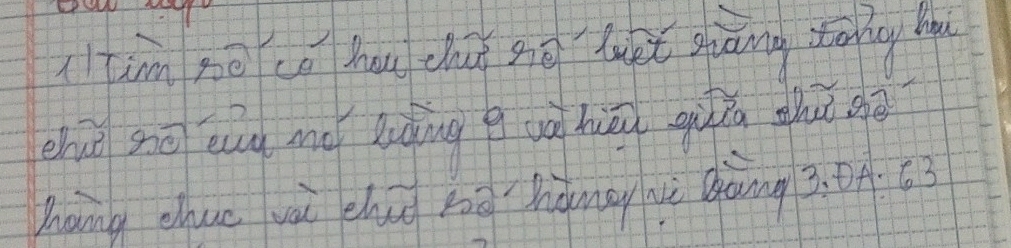 1) Tìm số có hai chữ số biết rằng tổng hai
chữ số của nó bằng 9 và hiệu giữa chữ số
hàng chục và chữ số hàng vị bằng 3. ĐA: 63